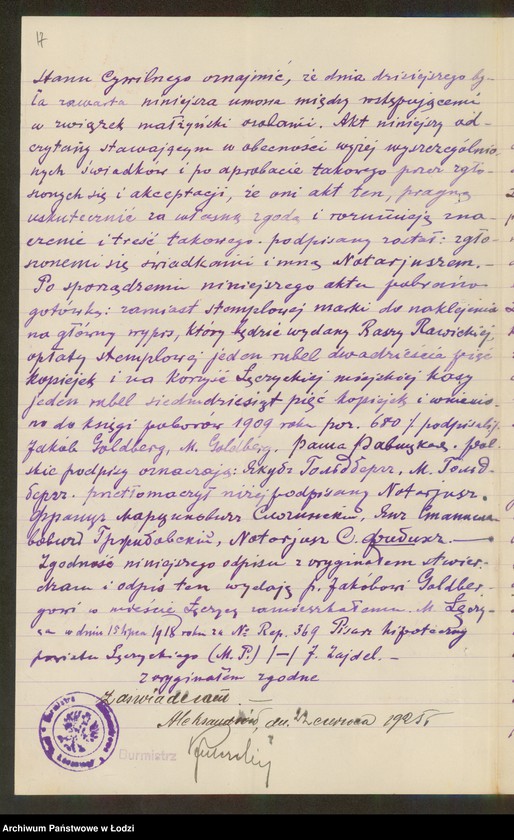 17
Stanu Cywilnego oznajmić, że dnia dzisiejszego by-
ła zawarta niniejsza umowa między wstępującemi
w związek małżyński osobami. Akt niniejszy od-
czytany stawającym w obecności wyżej wyszczególnio-
nych świadków i po aprobacie takowego przez zgło-
szonych się i akceptacji, że oni akt ten, pragną
uskutecznić za własną zgodą i rozumieją zna-
czenie i treść takowego. podpisany został: zgło-
szonemi się świadkami i mną Notarjuszem. –
Po sporządzeniu niniejszego aktu pobrano
gotówką: zamiast stemplowej marki do naklejenia
na główny wypis, który będzie wydany Raszy Rawickiej
opłaty stemplowej jeden rubel dwadzieścia pięć
kopiejek i na korzyść Łęczyckiej miejskiej kasy
jeden rubel siedmdziesiąt pięć kopiejek i wniesio-
no do księgi poborów 1909 roku poz. 680 / podpisali:
Jakób Goldberg, M. Goldberg, Раша Равицкая. pol-
skie podpisy oznaczają: Якубъ Гольдбергъ, М. Гольд-
бергъ. przetłomaczył niżej podpisany Notarjusz.
Францъ Марциновичъ
Notarjusz С.
Zgodność niniejszego odpisu z oryginałem stwier-
dzam i odpis ten wydaję p. Jakóbowi Goldber-
gowi w mieście Łęczycy zamieszkałemu. M. Łęczy-
ca w dniu 15 lipca 1918 roku za № Rep. 369 Pisarz hipoteczny
powiatu Łęczyckiego (M.P.) /–/ J. Zajdel. –
z oryginałem zgodne
Zaświadczam. –
Aleksandrów, dn. 22 czerwca 1925 r.
Burmistrz
Archiwum Państwowe w Łodzi